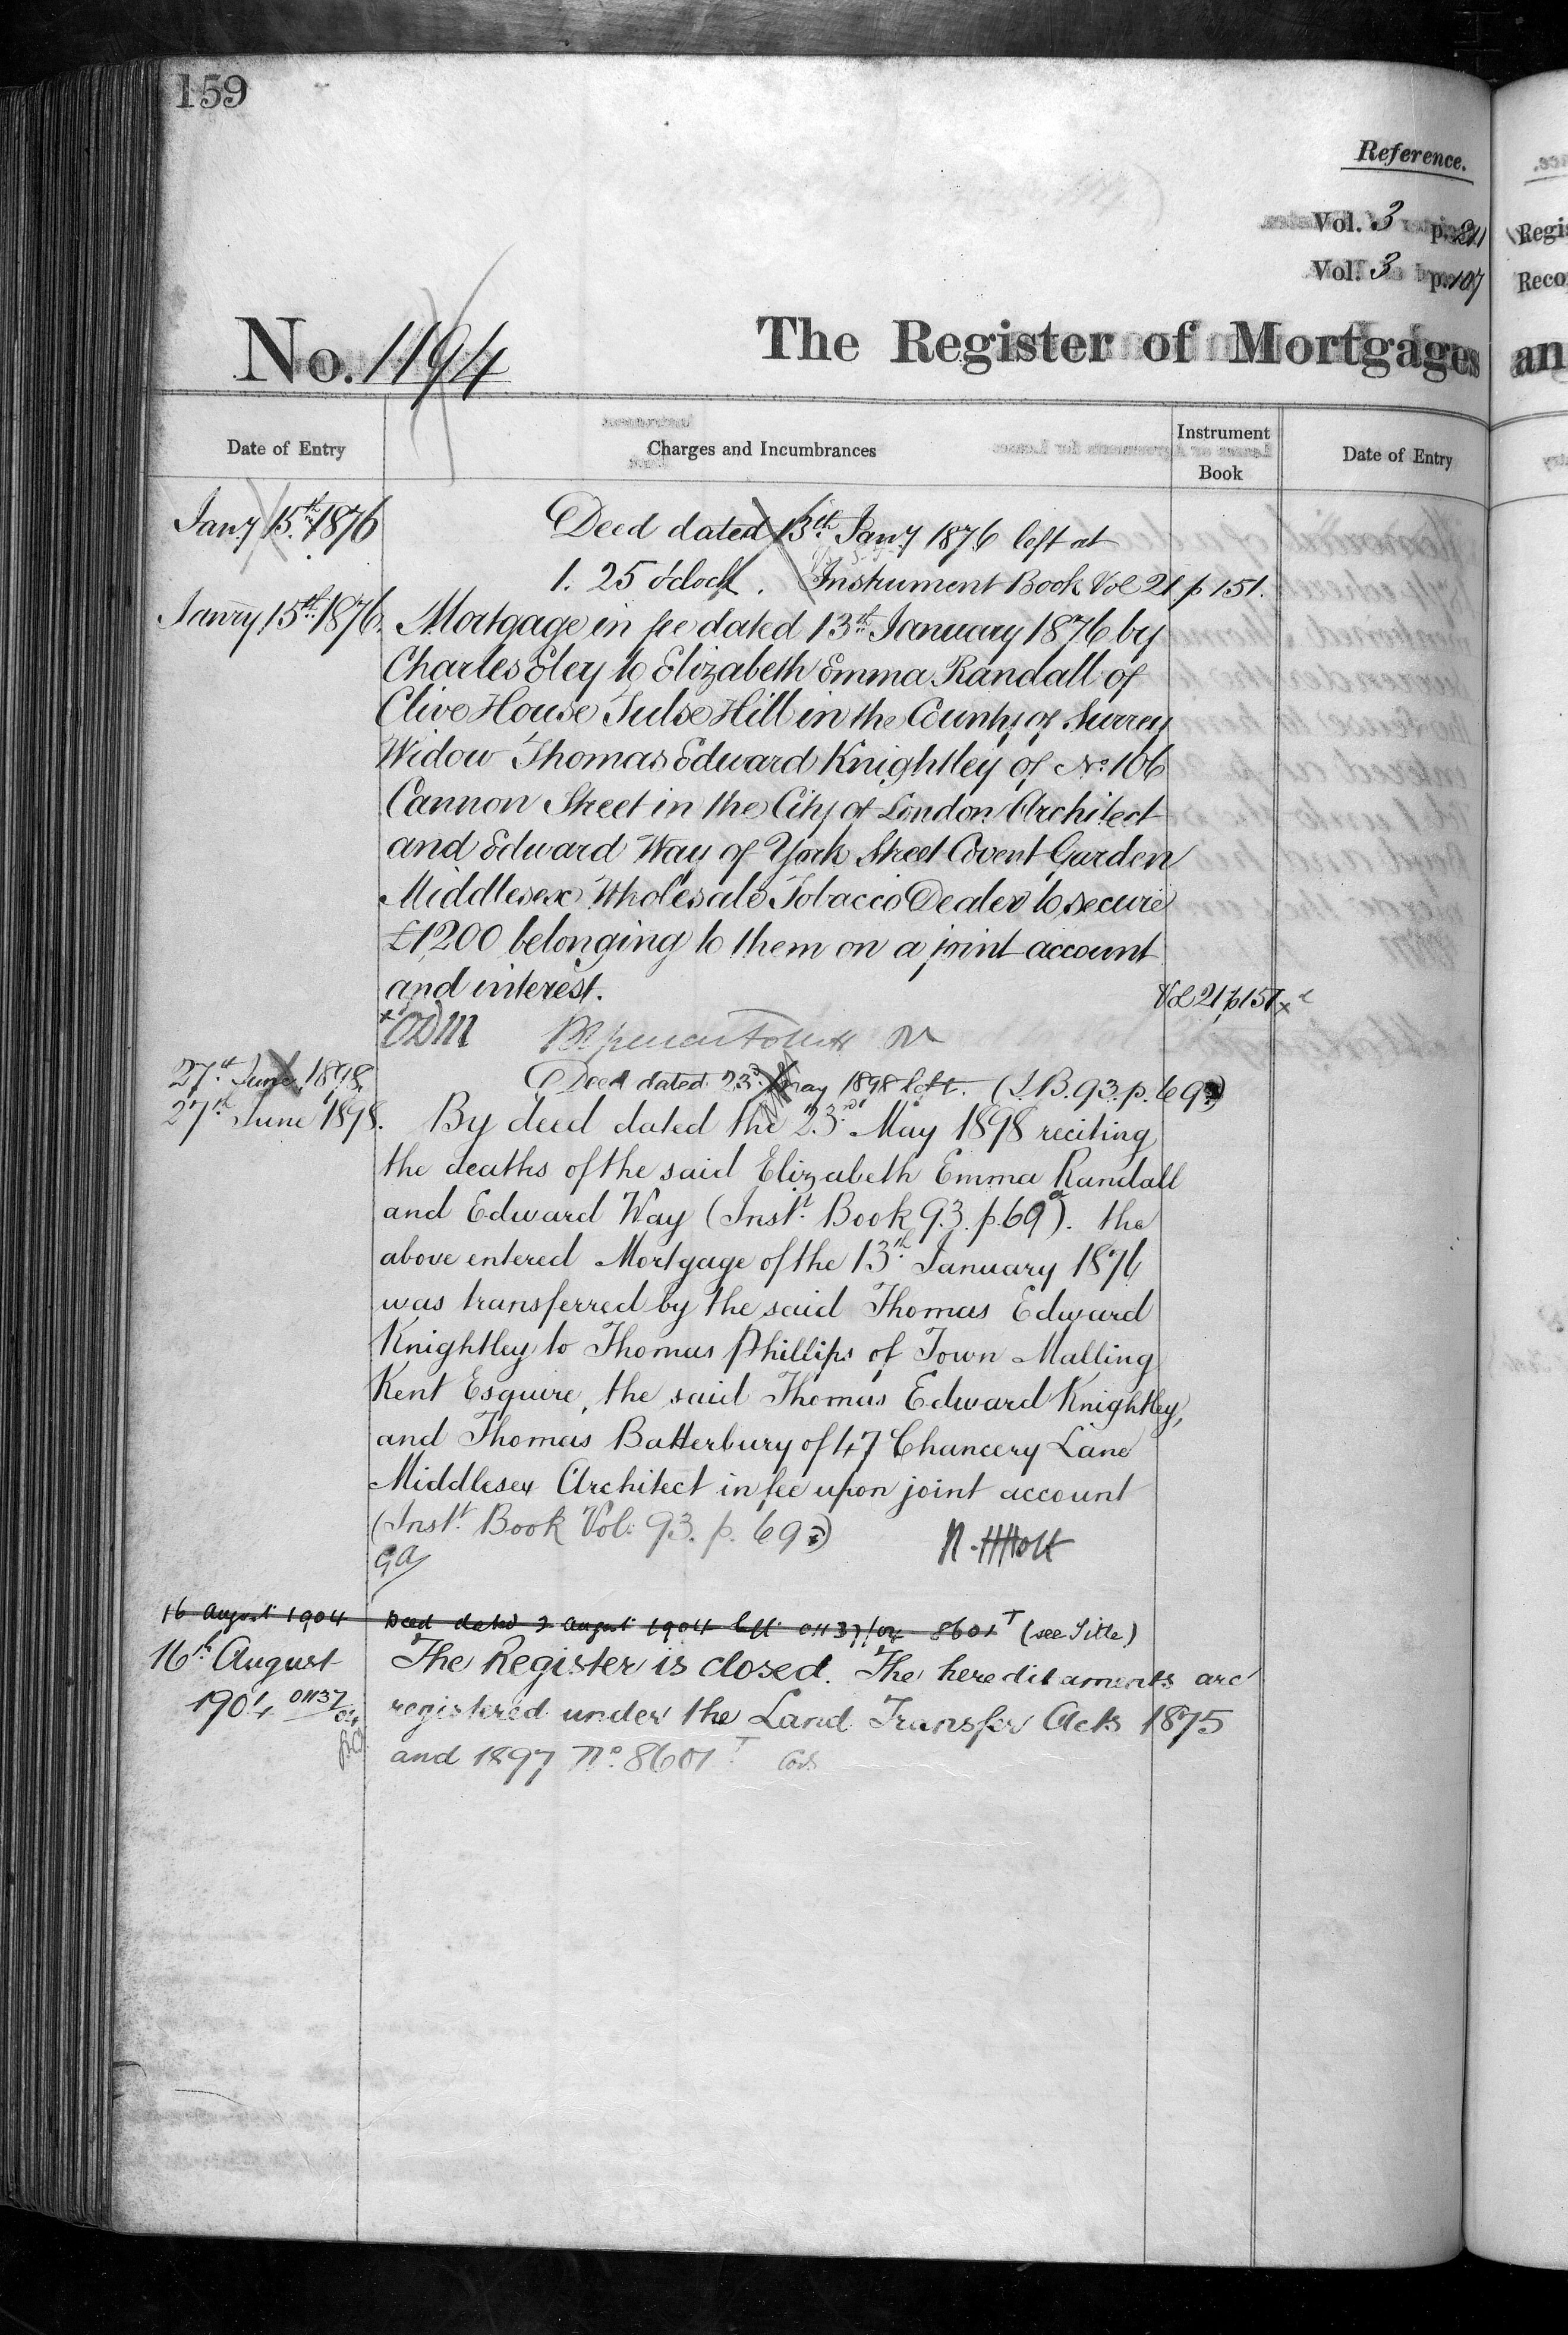 159
Reference.
Vol. 3 p. 211
Vol. 3 p. 107
No. 1194 The Register of Mortgages an
Date of Entry Charges and Incumbrances Instrument Book Date of Entry
Jany 15th 1876 Deed dated 13th Jany 1876 left at
1. 25 o'clock. Instrument Book Vol 21 p 151.
Janry 15th 1876. Mortgage in fee dated 13th January 1876 by
Charles Eley to Elizabeth Emma Randall of
Clive House Tulse Hill in the County of Surrey
Widow Thomas Edward Knightley of No 106
Cannon Street in the City of London Architect
and Edward Way of York Street Covent Garden
Middlesex Wholesale Tobacco Dealer to secure
£1200 belonging to them on a joint account
and interest. Vol 21 p 151
27th June 1898 Deed dated 23rd May 1898 left. (I.B. 93. p. 69a)
27th June 1898. By deed dated the 23rd May 1898 reciting
the deaths of the said Elizabeth Emma Randall
and Edward Way (Instt Book 93. p. 69a). the
above entered Mortgage of the 13th January 1876
was transferred by the said Thomas Edward
Knightley to Thomas Phillips of Town Malling
Kent Esquire, the said Thomas Edward Knightley,
and Thomas Batterbury of 47 Chancery Lane
Middlesex Architect in fee upon joint account
(Instt Book Vol: 93. p. 69a)
16 August 1904 Deed dated 2 August 1904 left 01137/04 8601T (see Title)
16th August The Register is closed. The hereditaments are
1904 01137/04 registered under the Land Transfer Acts 1875
and 1897 No. 8601T
Regis
Reco